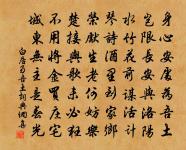 身心安處為吾土
豈限長安與洛陽
水竹花前謀活計
琴詩酒里到家鄉
榮生老何妨樂
楚接輿歌未必狂
不用將金買莊宅
城東無主是春光
白居易吾土